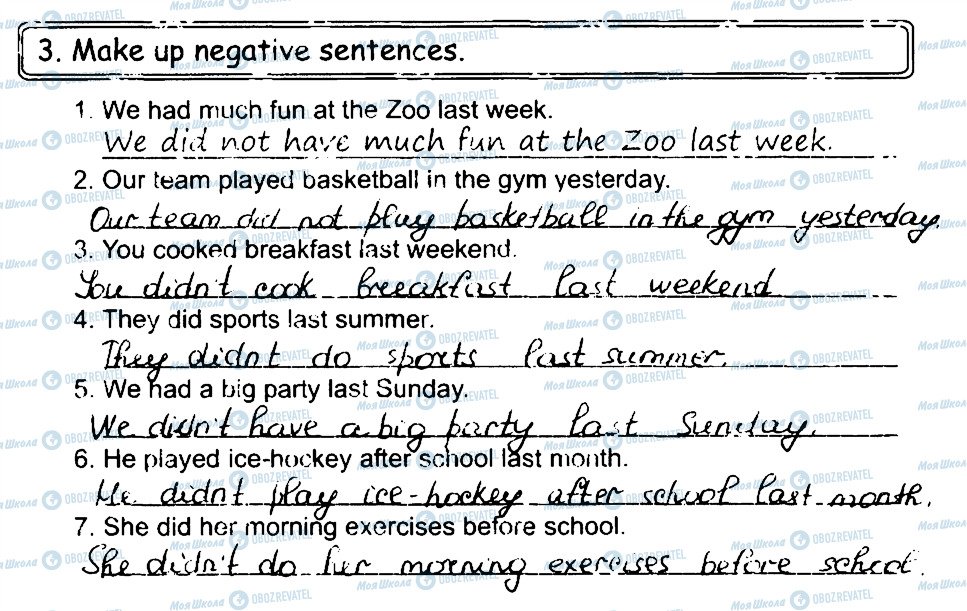 3. Make up negative sentences.
1. We had much fun at the Zoo last week.
We did not have much fun at the Zoo last week.
2. Our team played basketball in the gym yesterday.
Our team did not play basketball in the gym yesterday.
3. You cooked breakfast last weekend.
You didn't cook breeakfast last weekend
4. They did sports last summer.
They didnt do sports last summer.
5. We had a big party last Sunday.
We didn't have a big party last Sunday.
6. He played ice-hockey after school last month.
He didnt play ice-hockey after school last month.
7. She did her morning exercises before school.
She didn't do her morning exercises before school.
Моя Школа OBOZREVATEL